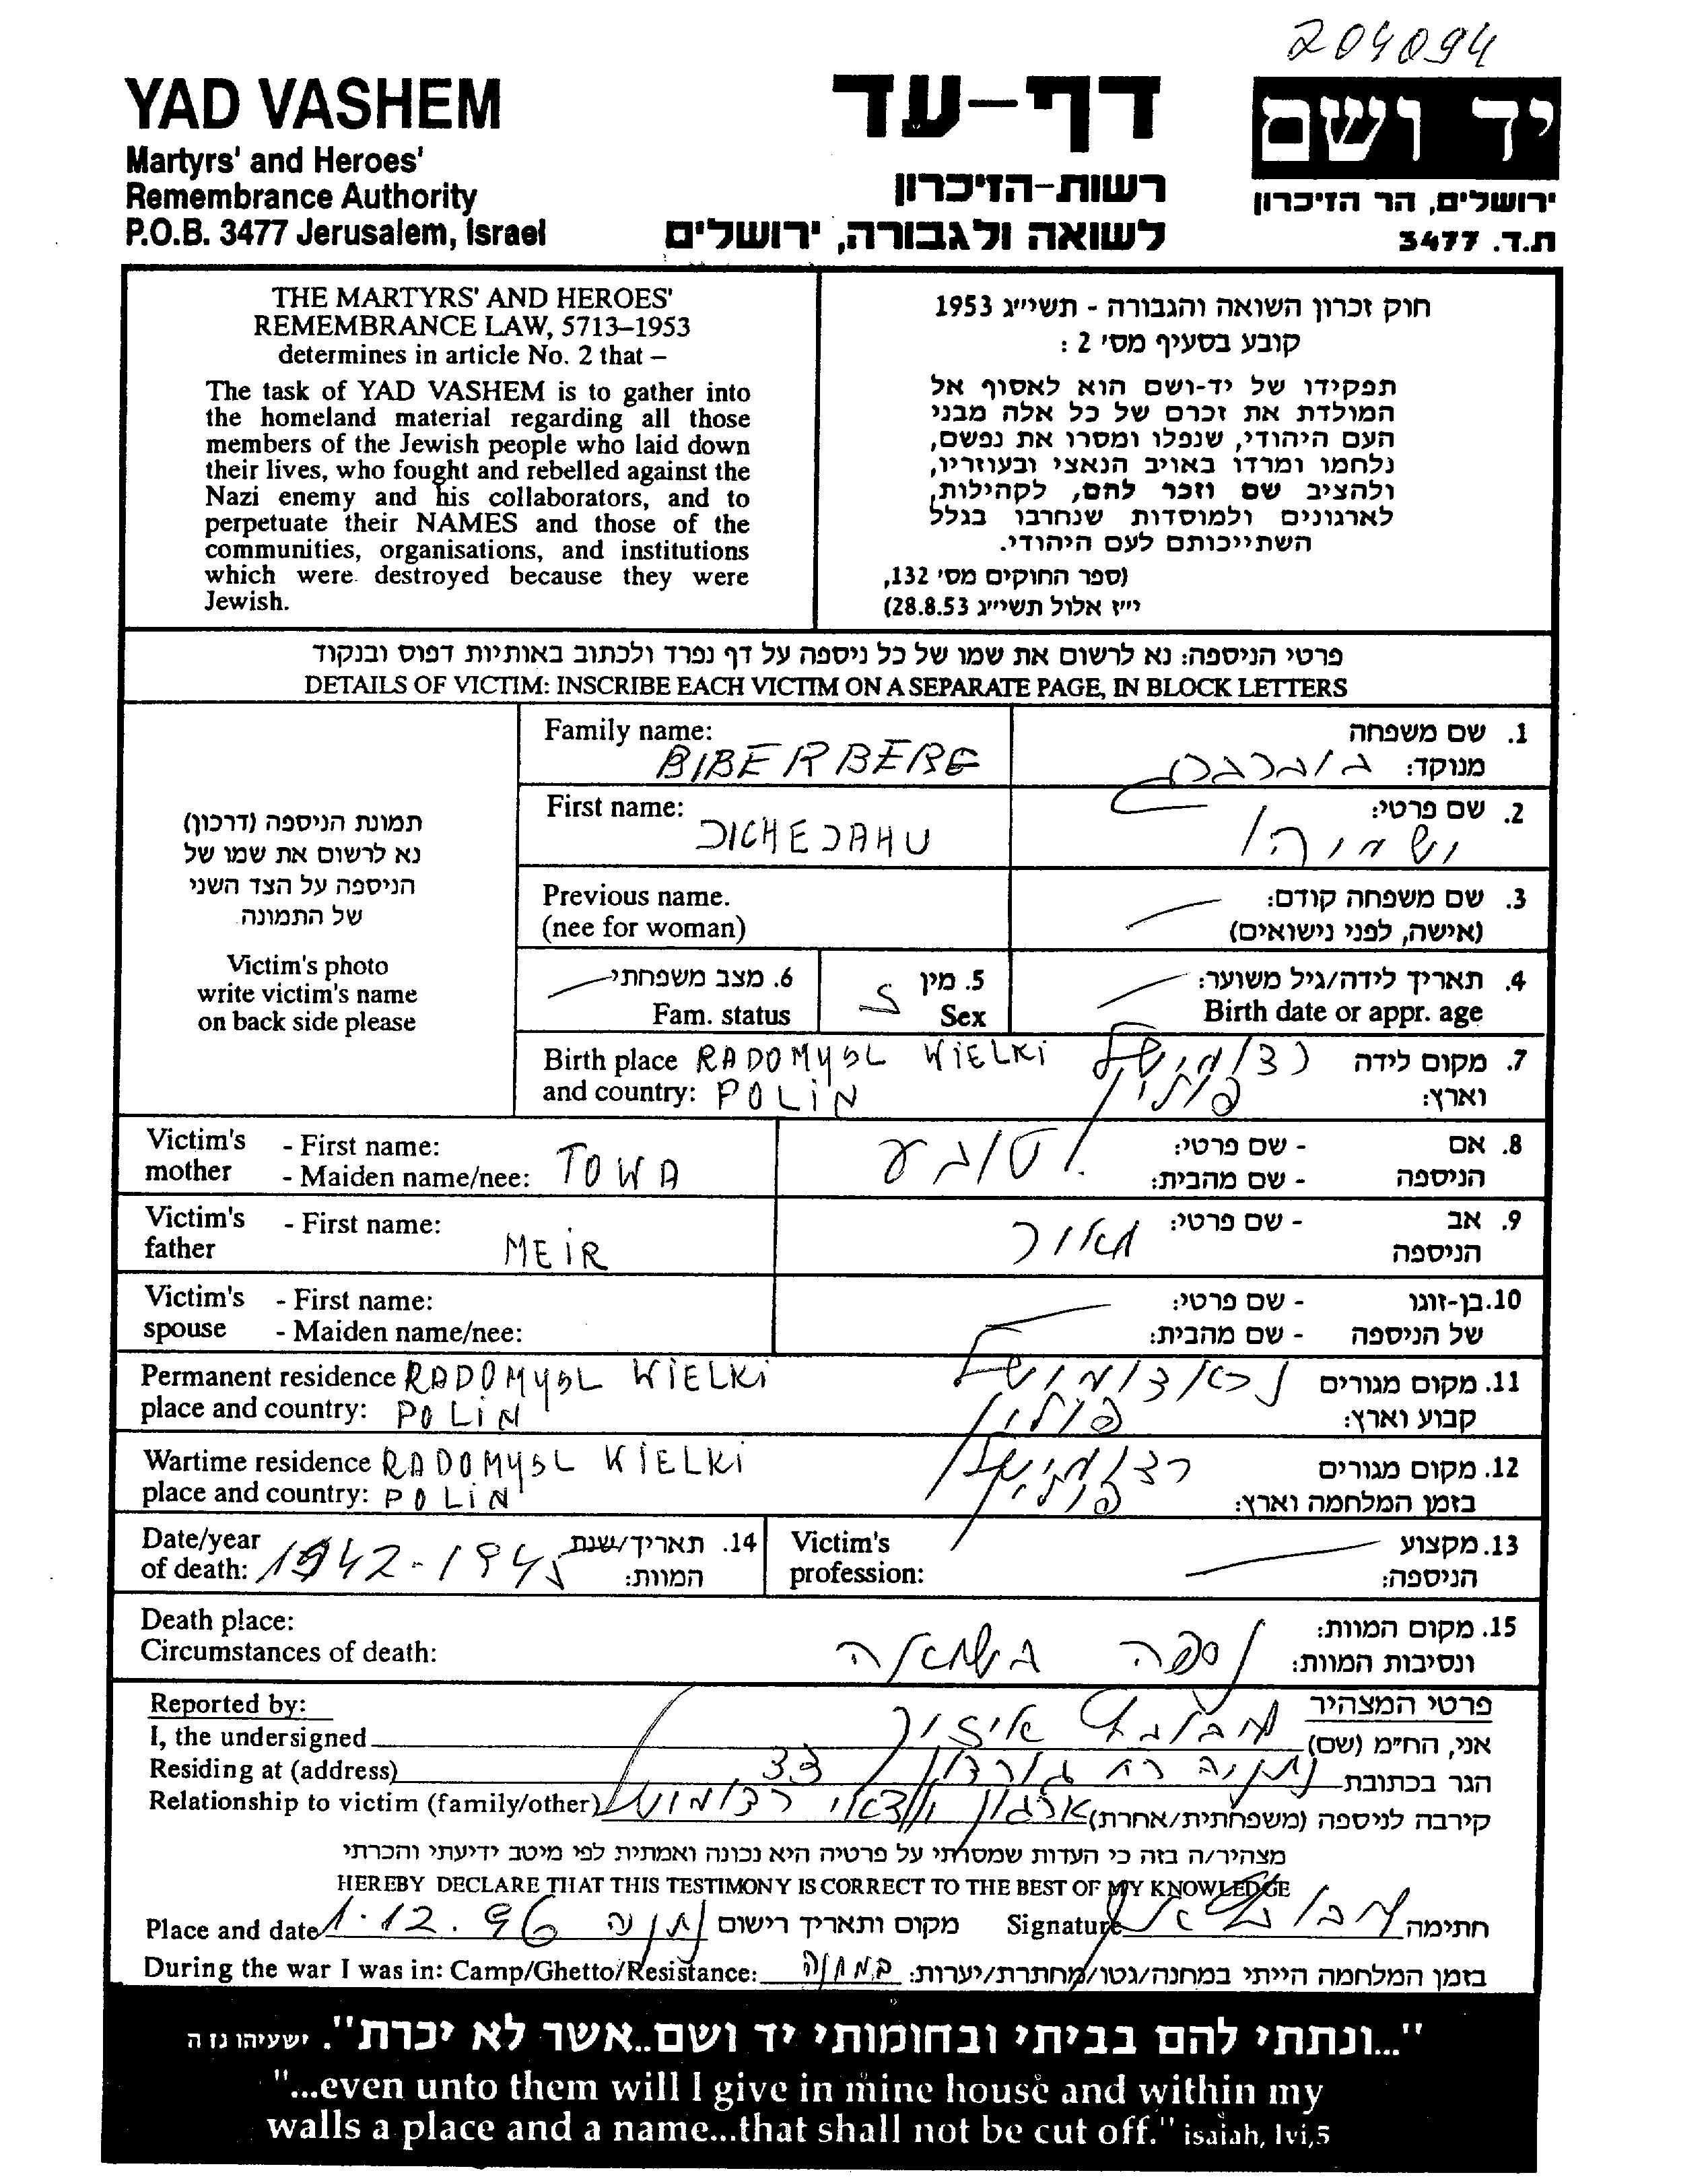 204094
YAD VASHEM
Martyrs' and Heroes'
Remembrance Authority
P.O.B. 3477 Jerusalem, Israel
דף-עד
רשות-הזיכרון
לשואה ולגבורה, ירושלים
יד ושם
ירושלים, הר הזיכרון
ת.ד. 3477
THE MARTYRS' AND HEROES'
REMEMBRANCE LAW, 5713–1953
determines in article No. 2 that –
The task of YAD VASHEM is to gather into
the homeland material regarding all those
members of the Jewish people who laid down
their lives, who fought and rebelled against the
Nazi enemy and his collaborators, and to
perpetuate their NAMES and those of the
communities, organisations, and institutions
which were destroyed because they were
Jewish.
חוק זכרון השואה והגבורה - תשי״ג 1953
קובע בסעיף מס' 2 :
תפקידו של יד-ושם הוא לאסוף אל
המולדת את זכרם של כל אלה מבני
העם היהודי, שנפלו ומסרו את נפשם,
נלחמו ומרדו באויב הנאצי ובעוזריו,
ולהציב שם וזכר להם, לקהילות,
לארגונים ולמוסדות שנחרבו בגלל
השתייכותם לעם היהודי.
(ספר החוקים מס' 132,
י״ז אלול תשי״ג 28.8.53)
פרטי הניספה: נא לרשום את שמו של כל ניספה על דף נפרד ולכתוב באותיות דפוס ובנקוד
DETAILS OF VICTIM: INSCRIBE EACH VICTIM ON A SEPARATE PAGE, IN BLOCK LETTERS
תמונת הניספה (דרכון)
נא לרשום את שמו של
הניספה על הצד השני
של התמונה
Victim's photo
write victim's name
on back side please
Family name: BIBERBERG
1. שם משפחה
מנוקד: ביברברג
First name: JICHEJAHU
2. שם פרטי:
Previous name.
(nee for woman)
3. שם משפחה קודם:
(אישה, לפני נישואים)
6. מצב משפחתי
Fam. status
5. מין ז
Sex
4. תאריך לידה/גיל משוער:
Birth date or appr. age
Birth place RADOMYSL WIELKI
and country: POLIN
7. מקום לידה
וארץ: פולין
Victim's mother - First name: TOWA
- Maiden name/nee:
8. אם הניספה - שם פרטי: טובע
- שם מהבית:
Victim's father - First name: MEIR
9. אב הניספה - שם פרטי: מאיר
Victim's spouse - First name:
- Maiden name/nee:
10. בן-זוגו של הניספה - שם פרטי:
- שם מהבית:
Permanent residence RADOMYSL WIELKI
place and country: POLIN
11. מקום מגורים
קבוע וארץ: פולין
Wartime residence RADOMYSL WIELKI
place and country: POLIN
12. מקום מגורים
בזמן המלחמה וארץ: פולין
Date/year
of death: 1942-194
14. תאריך/שנת
המוות:
Victim's
profession:
13. מקצוע
הניספה:
Death place:
Circumstances of death:
15. מקום המוות:
ונסיבות המוות: נספה בשואה
Reported by:
פרטי המצהיר
I, the undersigned
אני, הח״מ (שם)
Residing at (address)
הגר בכתובת נתניה רח גורדון 33
Relationship to victim (family/other)
קירבה לניספה (משפחתית/אחרת) ארגון יוצאי
מצהיר/ה בזה כי העדות שמסרתי על פרטיה היא נכונה ואמתית לפי מיטב ידיעתי והכרתי
HEREBY DECLARE THAT THIS TESTIMONY IS CORRECT TO THE BEST OF MY KNOWLEDGE
Place and date 1.12.96 נתניה מקום ותאריך רישום
Signature חתימה
During the war I was in: Camp/Ghetto/Resistance:
בזמן המלחמה הייתי במחנה/גטו/מחתרת/יערות: במחנה
"...ונתתי להם בביתי ובחומותי יד ושם..אשר לא יכרת". ישעיהו נז ה
"...even unto them will I give in mine house and within my
walls a place and a name...that shall not be cut off." isaiah, lvi,5